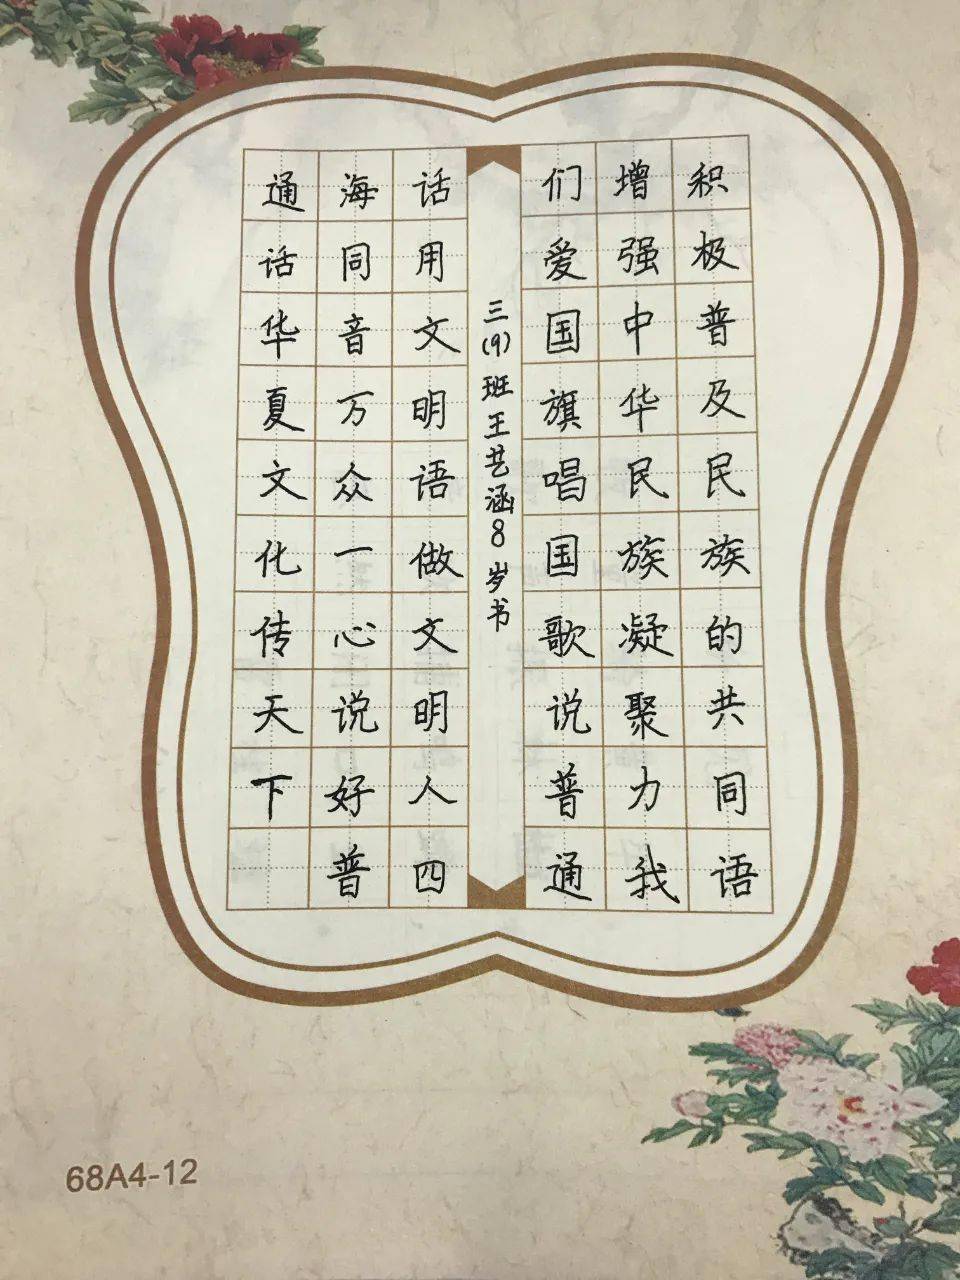 积极普及民族的共同语
增强中华民族凝聚力我
们爱国旗唱国歌说普通
话用文明语做文明人四
海同音万众一心说好普
通话华夏文化传天下
三(9)班王艺涵8岁书
68A4-12